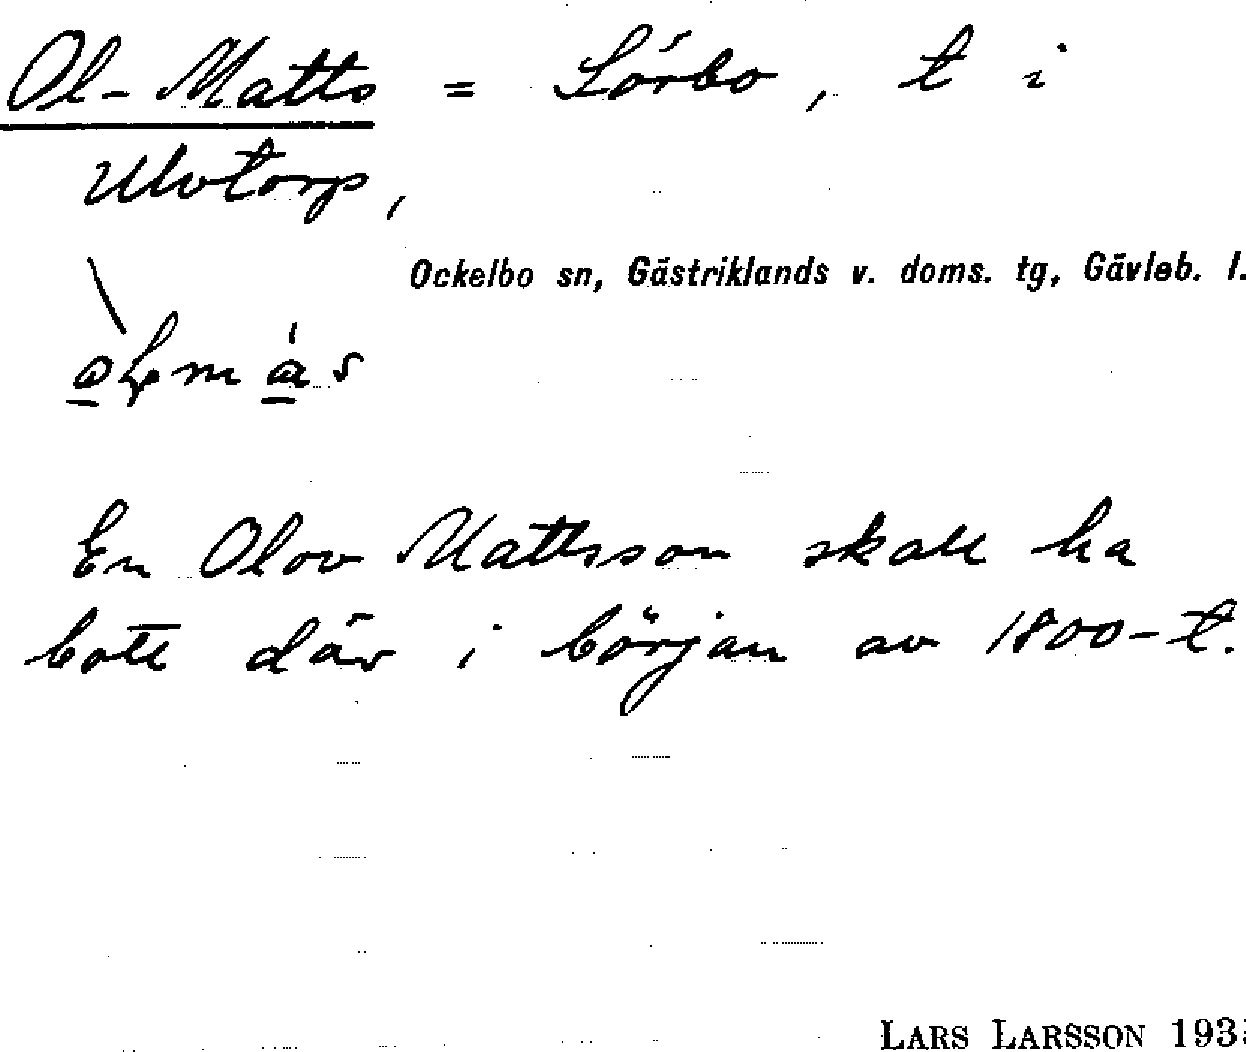 Ol-Matts = Sörbo, t i
Ulvtorp,
Ockelbo sn, Gästriklands v. doms. tg, Gävleb. l.
En Olov Mattsson skall ha
bott där i början av 1800-t.
LARS LARSSON 193